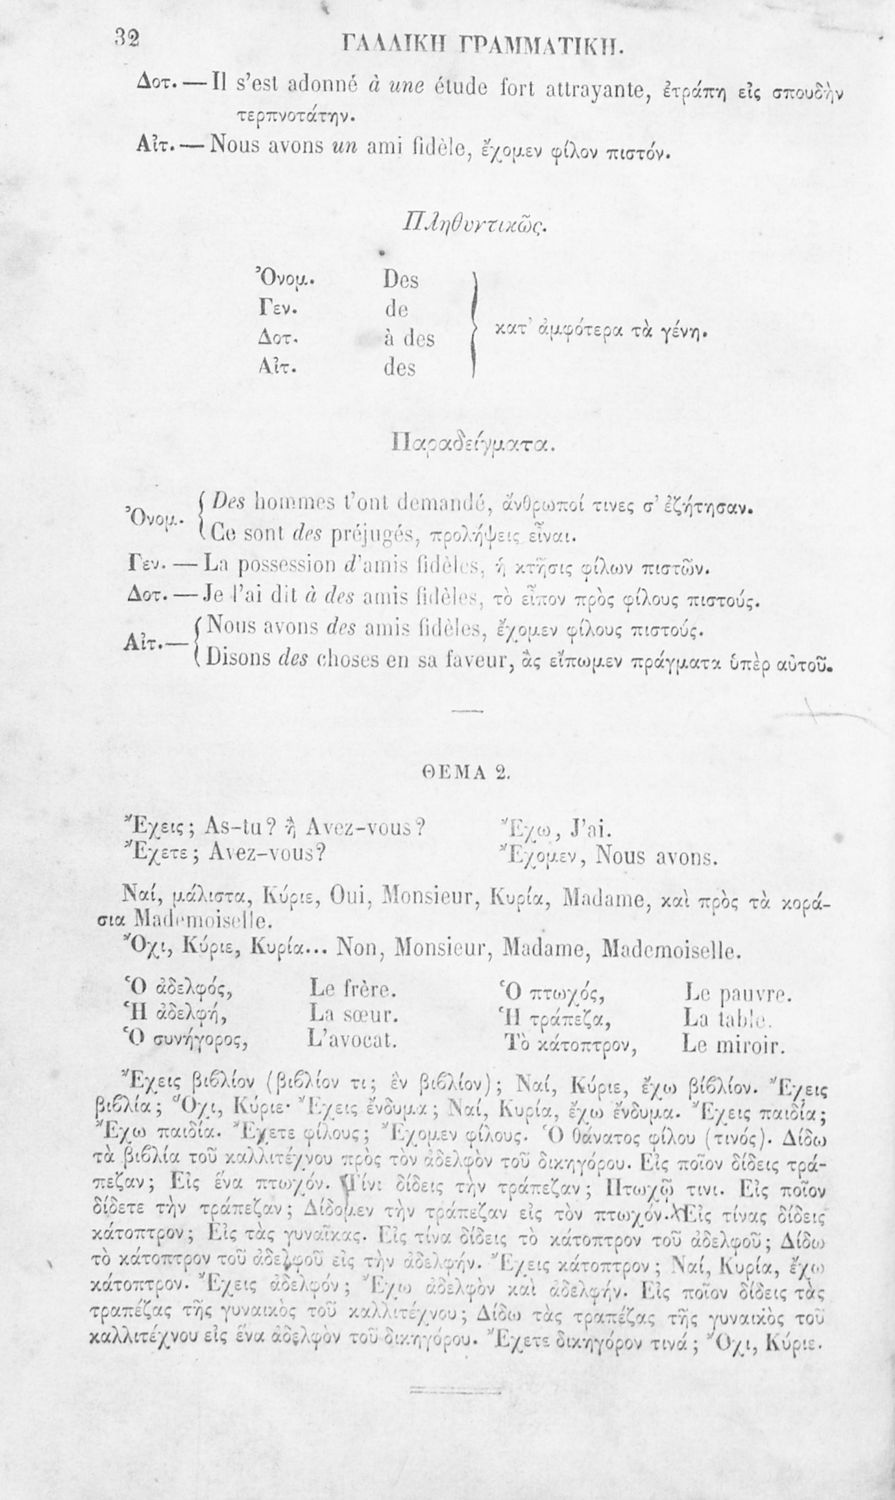 32 ΓΑΛΛΙΚΗ ΓΡΑΜΜΑΤΙΚΗ.
Δοτ. — Il s'est adonné à une étude fort attrayante, ἐτράπη εἰς σπουδὴν
τερπνοτάτην.
Αἰτ. — Nous avons un ami fidèle, ἔχομεν φίλον πιστόν.
Πληθυντικῶς.
Ὀνομ. Des
Γεν. de
Δοτ. à des
Αἰτ. des
κατ' ἀμφότερα τὰ γένη.
Παραδείγματα.
Ὀνομ. { Des hommes t'ont demandé, ἄνθρωποί τινες σ' ἐζήτησαν.
Ce sont des préjugés, προλήψεις εἶναι.
Γεν. — La possession d'amis fidèles, ἡ κτῆσις φίλων πιστῶν.
Δοτ. — Je l'ai dit à des amis fidèles, τὸ εἶπον πρὸς φίλους πιστούς.
Αἰτ. — { Nous avons des amis fidèles, ἔχομεν φίλους πιστούς.
Disons des choses en sa faveur, ἂς εἴπωμεν πράγματα ὑπὲρ αὐτοῦ.
ΘΕΜΑ 2.
Ἔχεις; As-tu? ἢ Avez-vous? Ἔχω, J'ai.
Ἔχετε; Avez-vous? Ἔχομεν, Nous avons.
Ναί, μάλιστα, Κύριε, Oui, Monsieur, Κυρία, Madame, καὶ πρὸς τὰ κορά-
σια Mademoiselle.
Ὄχι, Κύριε, Κυρία... Non, Monsieur, Madame, Mademoiselle.
Ὁ ἀδελφός, Le frère. Ὁ πτωχός, Le pauvre.
Ἡ ἀδελφή, La sœur. Ἡ τράπεζα, La table.
Ὁ συνήγορος, L'avocat. Τὸ κάτοπτρον, Le miroir.
Ἔχεις βιβλίον (βιβλίον τι; ἓν βιβλίον); Ναί, Κύριε, ἔχω βίβλίον. Ἔχεις
βιβλία; Ὄχι, Κύριε· Ἔχεις ἔνδυμα; Ναί, Κυρία, ἔχω ἔνδυμα. Ἔχεις παιδία;
Ἔχω παιδία. Ἔχετε φίλους; Ἔχομεν φίλους. Ὁ θάνατος φίλου (τινός). Δίδω
τὰ βιβλία τοῦ καλλιτέχνου πρὸς τὸν ἀδελφὸν τοῦ δικηγόρου. Εἰς ποῖον δίδεις τρά-
πεζαν; Εἰς ἕνα πτωχόν. Τίνι δίδεις τὴν τράπεζαν; Πτωχῷ τινι. Εἰς ποῖον
δίδετε τὴν τράπεζαν; Δίδομεν τὴν τράπεζαν εἰς τὸν πτωχόν. Εἰς τίνας δίδεις
κάτοπτρον; Εἰς τὰς γυναῖκας. Εἰς τίνα δίδεις τὸ κάτοπτρον τοῦ ἀδελφοῦ; Δίδω
τὸ κάτοπτρον τοῦ ἀδελφοῦ εἰς τὴν ἀδελφήν. Ἔχεις κάτοπτρον; Ναί, Κυρία, ἔχω
κάτοπτρον. Ἔχεις ἀδελφόν; Ἔχω ἀδελφὸν καὶ ἀδελφήν. Εἰς ποῖον δίδεις τὰς
τραπέζας τῆς γυναικὸς τοῦ καλλιτέχνου; Δίδω τὰς τραπέζας τῆς γυναικὸς τοῦ
καλλιτέχνου εἰς ἕνα ἀδελφὸν τοῦ δικηγόρου. Ἔχετε δικηγόρον τινά; Ὄχι, Κύριε.